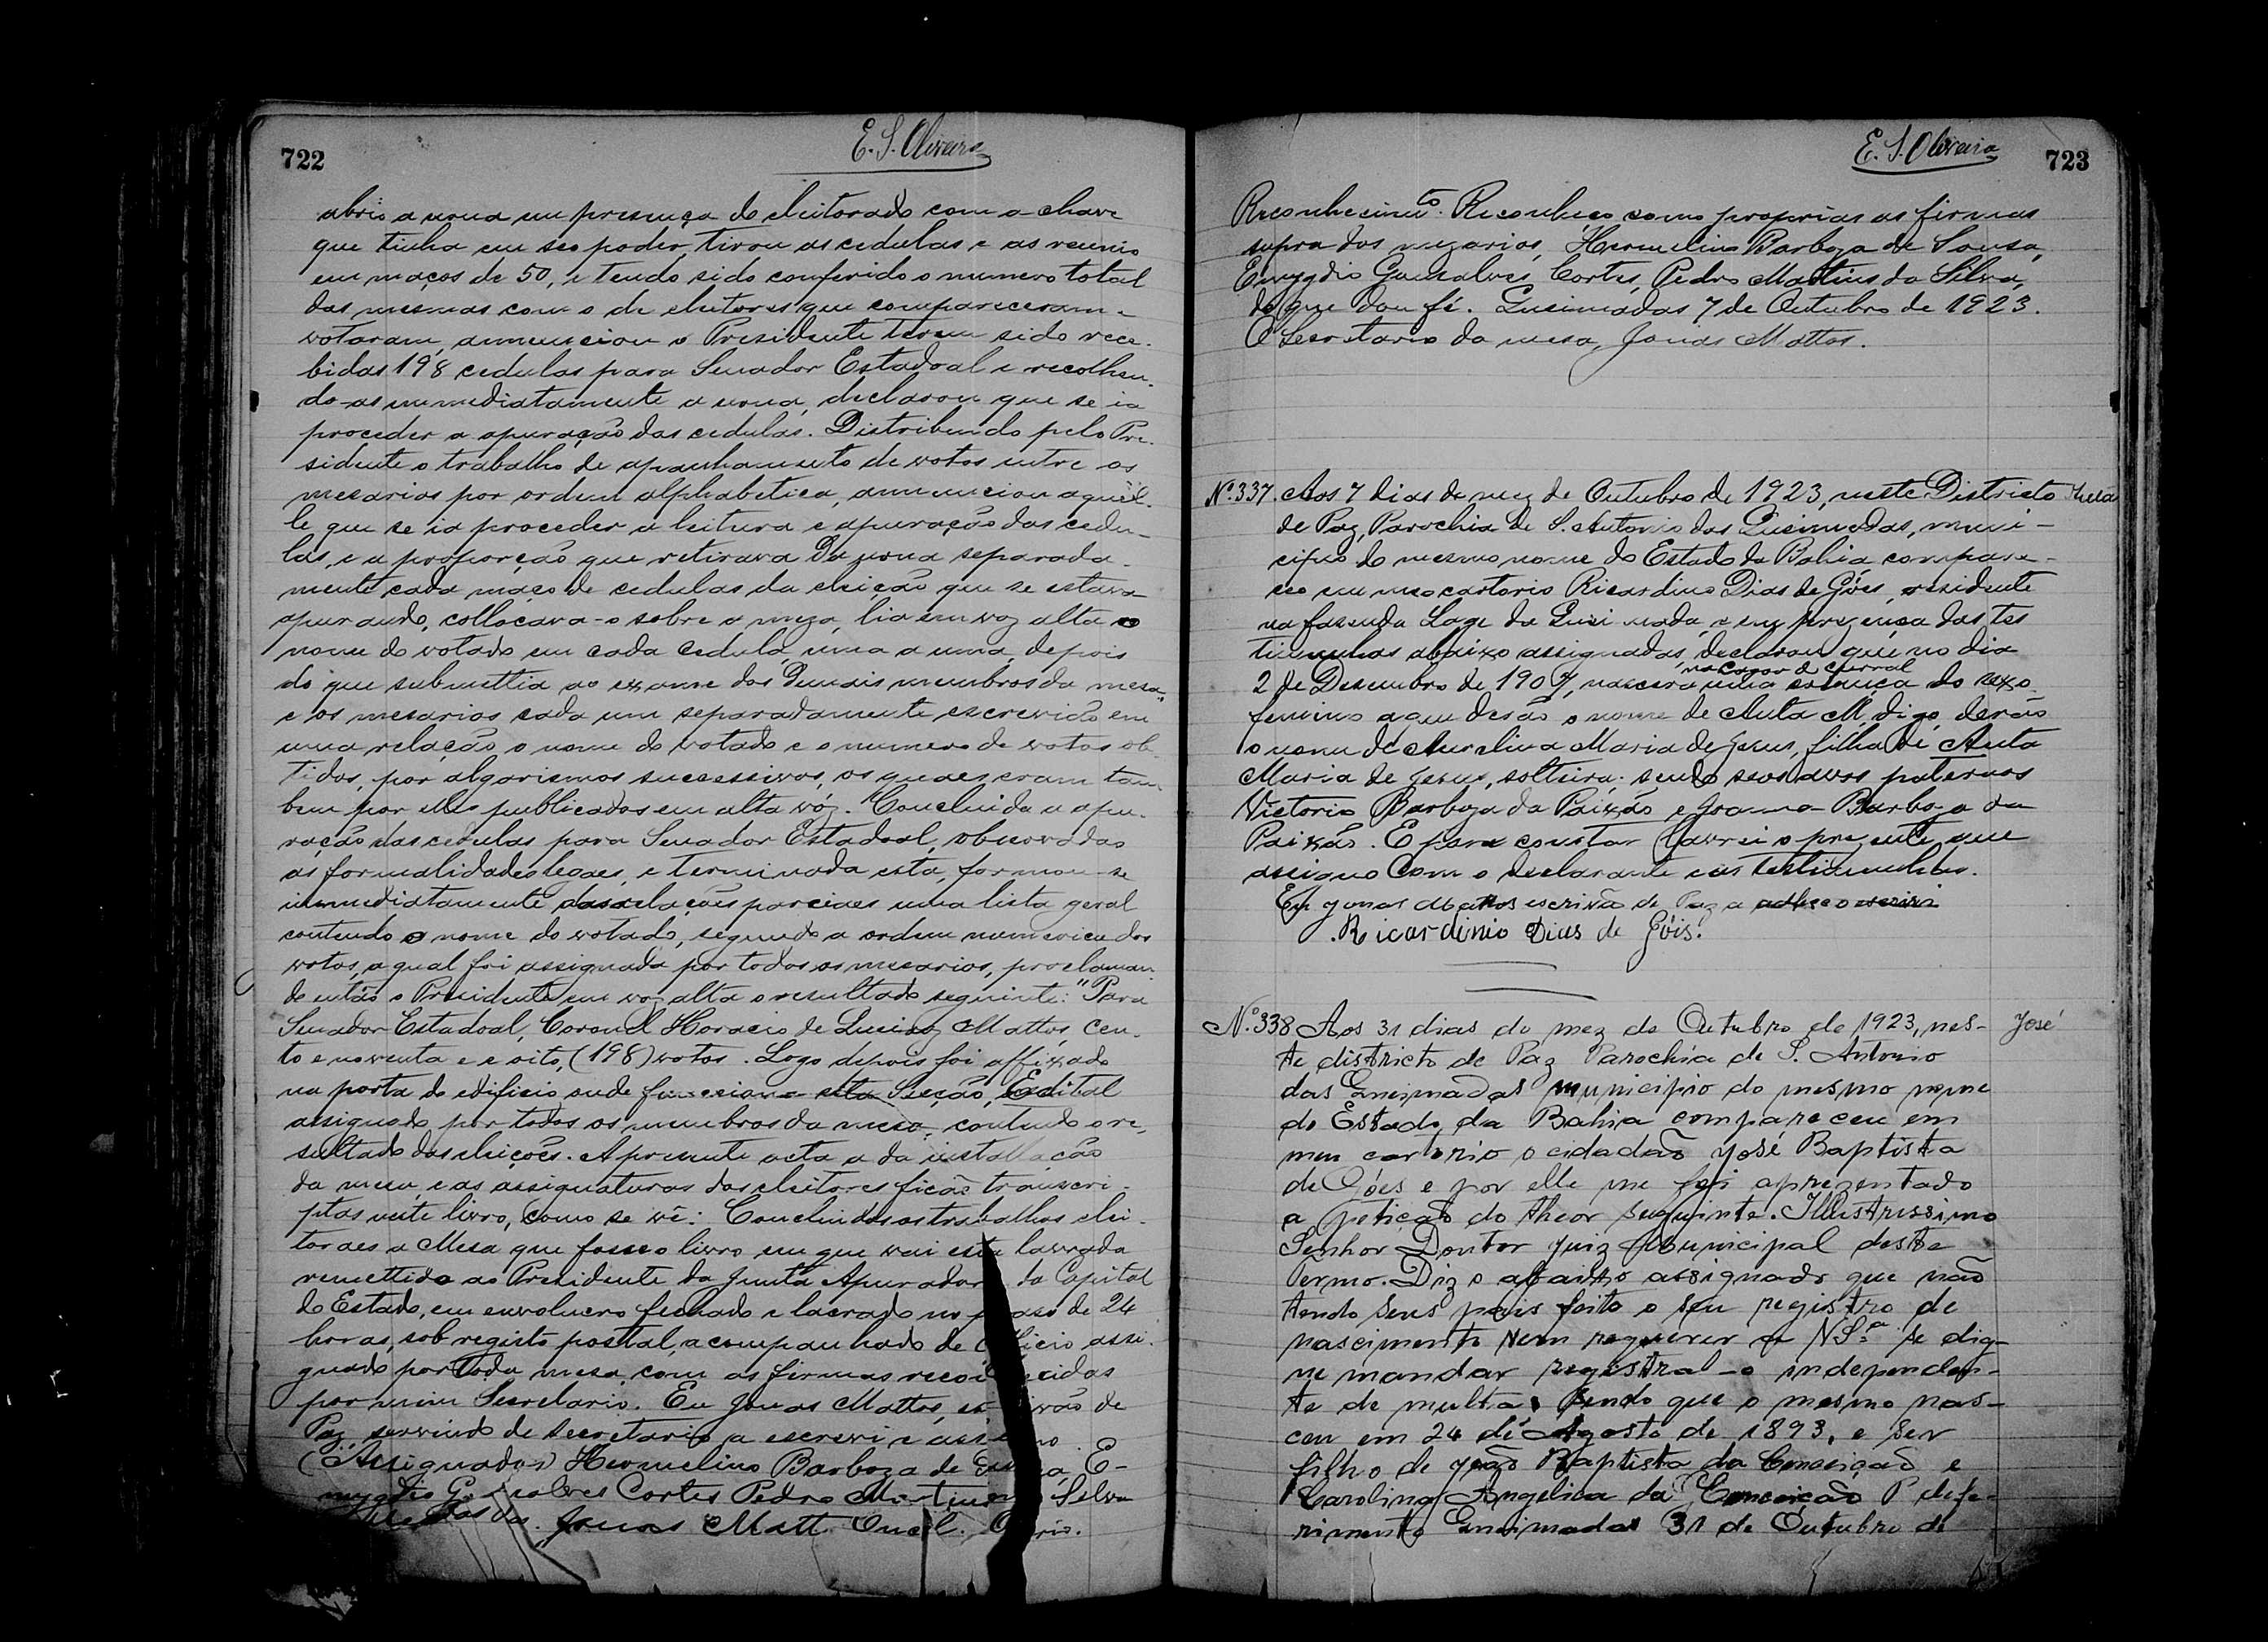 722
E. S. Oliveira
abrio a urna em presença do eleitorado com a chave
que tinha em seo poder, tirou as cedulas e as reunio
em maços de 50, e tendo sido conferido o numero total
das mesmas com o de eleitores que compareceram e
votaram, annunciou o Presidente terem sido rece-
bidas 198 cedulas para Senador Estadoal e recolhen-
do-as immediatamente a urna, declarou que se ia
proceder a apuração das cedulas. Distribuindo pelo Pre-
sidente o trabalho de apanhamento de votos entre os
mesarios por ordem alphabetica, annunciou aquel-
le que se ia proceder a leitura e apuração das cedu-
las, e a proporção que retirava da urna separada-
mente cada maço de cedulas da eleição que se estava
apurando, collocava-o sobre a meza, lia em voz alta o
nome do votado em cada cedula, uma a uma, depois
do que submettia ao exame dos demais membros da mesa,
e os mesarios cada um separadamente escrevião em
uma relação o nome do votado e o numero de votos ob-
tidos, por algarismos successivos, os quaes eram tam-
bem por elles publicados em alta vóz. Concluida a apu-
ração das cedulas para Senador Estadoal, observadas
as formalidades legaes, e terminada esta, formou-se
immediatamente das relações parciaes uma lista geral
contendo o nome do votado, segundo a ordem numerica dos
votos, a qual foi assignada por todos os mesarios, proclaman-
do então o Presidente em voz alta o resultado seguinte: "Para
Senador Estadoal, Coronel Horacio de Queiroz Mattos, cen-
to e noventa e oito, (198) votos. Logo depois foi affixado
na porta do edificio onde funcciona esta Secção, Edital
assignado por todos os membros da mesa, contendo o re-
sultado das eleições. A presente acta a da installação
da mesa, e as assignaturas dos eleitores ficão transcri-
ptas neste livro, como se vê: Concluidos os trabalhos elei-
toraes a Mesa que fosse o livro em que vai esta lavrada
remettido ao Presidente da Junta Apuradora da Capital
do Estado, em envolucro fechado e lacrado no praso de 24
horas, sob registo posttal, acompanhado de officio assi-
gnado por toda mesa, com as firmas reconhecidas
por mim Secretario. Eu Jonas Mattos, escrivão de
Paz, servindo de secretario a escrevi e assigno.
(Assignados) Hermelino Barboza de Sousa, E-
mygdio Gonsalves Cortes Pedro Martins da Silva
Jonas Matt
723
E. S. Oliveira
Reconhecimto. Reconheço como proprias as firmas
supra dos mezarios, Hermelino Barboza de Sousa,
Emygdio Gonsalves Cortes, Pedro Martins da Silva,
do que dou fé. Queimadas 7 de Outubro de 1923.
O Secretario da mesa, Jonas Mattos.
Nº. 337. Aos 7 dias do mez de Outubro de 1923, neste Districto
de Paz, Parochia de S. Antonio das Queimadas, muni-
cipio do mesmo nome do Estado da Bahia compare-
ceo em meo cartorio Ricardino Dias de Góes, residente
na fasenda Lage da Queimada, e em prezença das tes
timunhas abaixo assignadas, declarou que no dia
no logar de curral
2 de Desembro de 1907, nascera uma criança do sexo
feminino a que derão o nome de Auta M, digo, derão
o nome de Aurelina Maria de Jesus, filha de Auta
Maria de Jesus, solteira; sendo seos avos paternos
Victorio Barboza da Paixão e Joanna Barboza da
Paixão. E para constar lavrei o prezente que
assigno com o declarante e as testimunhas.
Eu Jonas Mattos escrivão de Paz a escrevi
Ricardinio Dias de Góis.
Nº. 338 Aos 31 dias do mez de Outubro de 1923, nes-
José
te districto de Paz Parochia de S. Antonio
das Queimadas municipio do mesmo nome
do Estado da Bahia compareceu em
meu cartorio o cidadão José Baptista
de Góes e por elle me foi aprezentado
a petição do theor seguinte. Illustrissimo
Senhor Doutor Juiz Municipal deste
Termo. Diz o abaixo assignado que não
tendo seus pais feito o seu registro de
nascimento vem requerer a V Sª. se dig-
ne mandar registral-o independen-
te de multa, sendo que o mesmo nas-
ceu em 24 de Agosto de 1893, e ser
filho de João Baptista da Conceição e
Carolina Angelica da Conceição P defe-
rimento Queimadas 31 de Outubro de